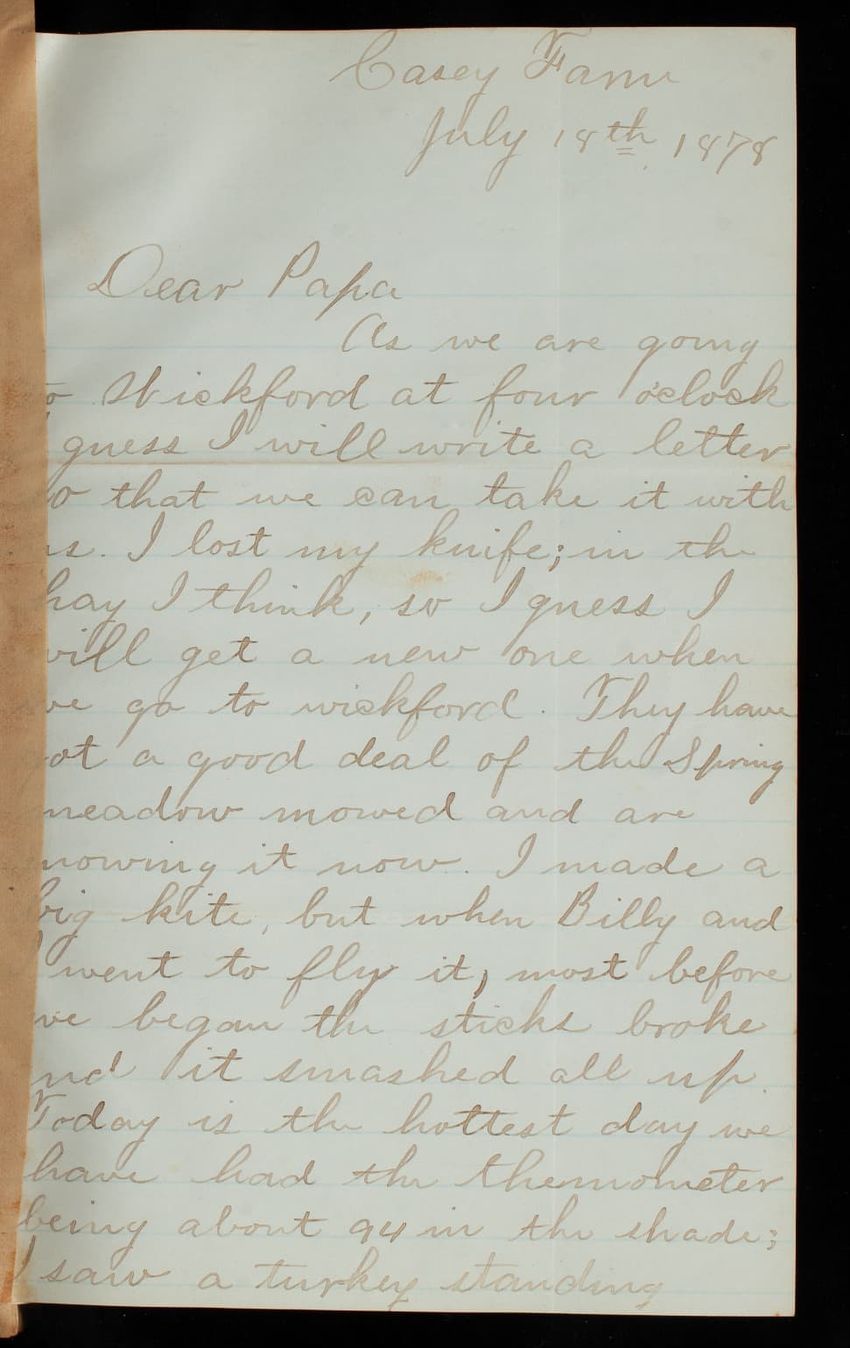 Casey Farm
July 18th 1878
Dear Papa
As we are going
to Wickford at four o'clock
I guess I will write a letter
so that we can take it with
us. I lost my knife; in the
hay I think, so I guess I
will get a new one when
we go to wickford. They have
got a good deal of the Spring
meadow mowed and are
mowing it now. I made a
big kite, but when Billy and
I went to fly it, most before
we began the sticks broke
and it smashed all up.
Today is the hottest day we
have had the themometer
being about 94 in the shade;
I saw a turkey standing